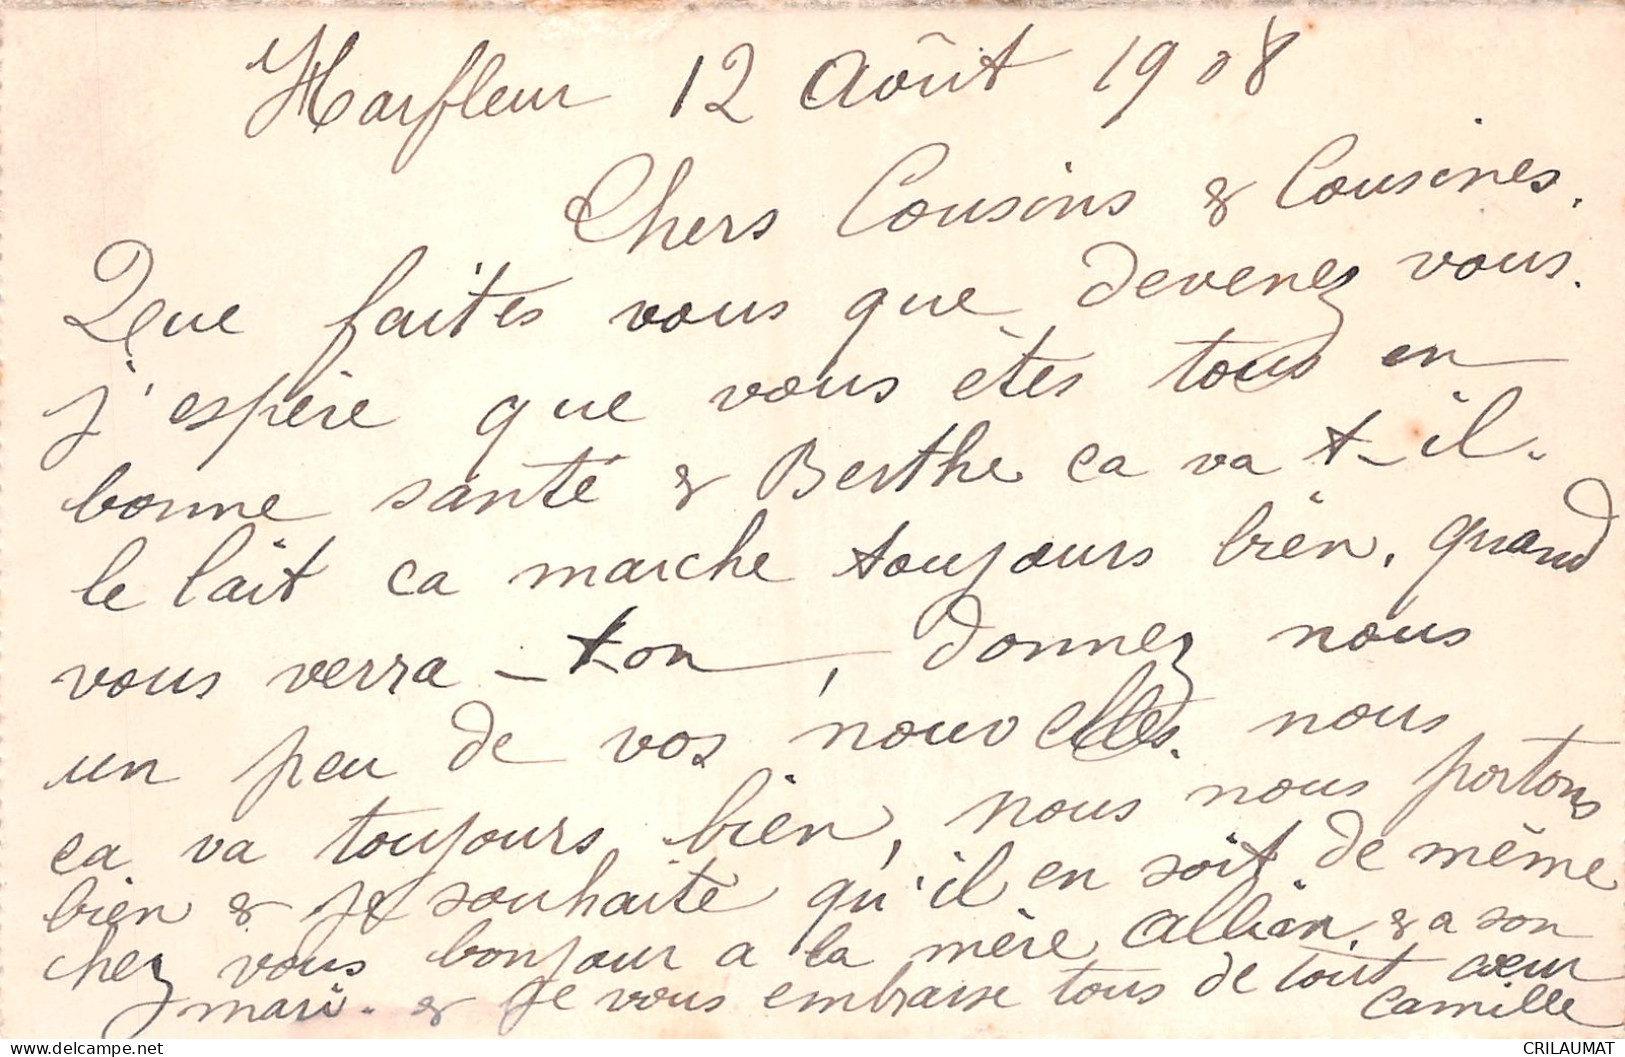 Harfleur 12 Août 1908
Chers Cousins & Cousines.
Que faites vous que devenez vous.
j'espère que vous êtes tous en
bonne santé & Berthe ca va t-il.
le lait ca marche toujours bien. quand
vous verra-ton, donnez nous
un peu de vos nouvelles. nous
ca va toujours bien, nous nous portons
bien & je souhaite qu'il en soit de même
chez vous bonjour a la mère Allian. & a son
mari. & Je vous embrasse tous de tout cœur
Camille
delcampe.net
CRILAUMAT